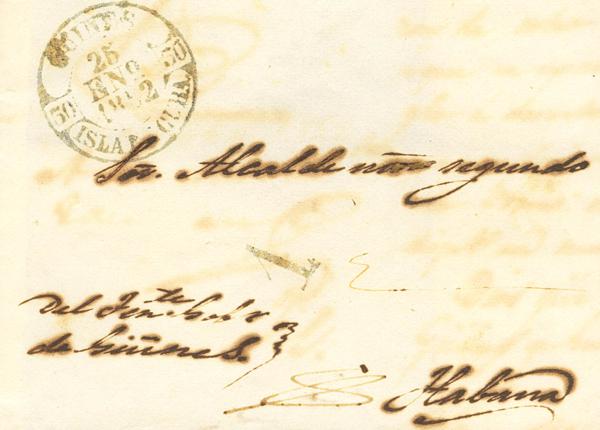 GUINES
25
ENO
1842
ISLA DE CUBA
30
30
Sor. Alcalde mor segundo
1
Del Tente Gobor
de Guines.
Habana